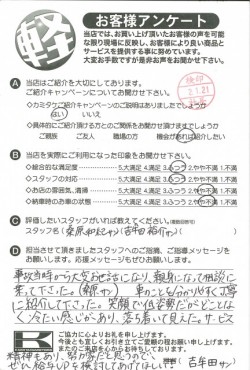 軽
お客様アンケート
当店では、お買い上げ頂いたお客様の声を可能
な限り現場に反映し、お客様により良い商品と
サービスを提供する事に努めています。
大変お手数ですが是非お声をお聞かせ下さい。
検印
2.1.21
A 当店はご紹介を大切にしております。
ご紹介キャンペーンについてお聞かせ下さい。
◇カミタケご紹介キャンペーンのご説明はありましたでしょうか
はい いいえ
◇具体的にご紹介頂ける方とのご関係をお聞かせ下さい。
ご親族 ご友人 職場の方 機会があれば紹介したい
B 当店を実際にご利用になった印象をお聞かせ下さい。
◇総合的な満足度 5.大満足 4.満足 3.ふつう 2.やや不満 1.不満
◇スタッフの対応 5.大満足 4.満足 3.ふつう 2.やや不満 1.不満
◇お店の雰囲気、清掃 5.大満足 4.満足 3.ふつう 2.やや不満 1.不満
◇納車時のお車の状態 5.大満足 4.満足 3.ふつう 2.やや不満 1.不満
C 評価したいスタッフがいれば教えてください。(複数回答可)
スタッフ名
D 担当させて頂きましたスタッフへのご指導、ご指導メッセージを
お願いします。応援メッセージもぜひお願いします。
事故当時から大変お世話になり、親身になって相談に
来て下さった。 車のことも分かりやすく丁寧
に紹介して下さった。笑顔で低姿勢だがどことな
く冷たい感じがあり、落ち着いて見えた。サービス
精神もあり、努力家だと思うので、
ぜひ給与UPを検討してあげてほしい
K
ご協力に心よりお礼を申し上げます。
今後ともよろしくお引き立てご愛顧の程お願い申し上げます。
またのご来店を心よりお待ちしております。